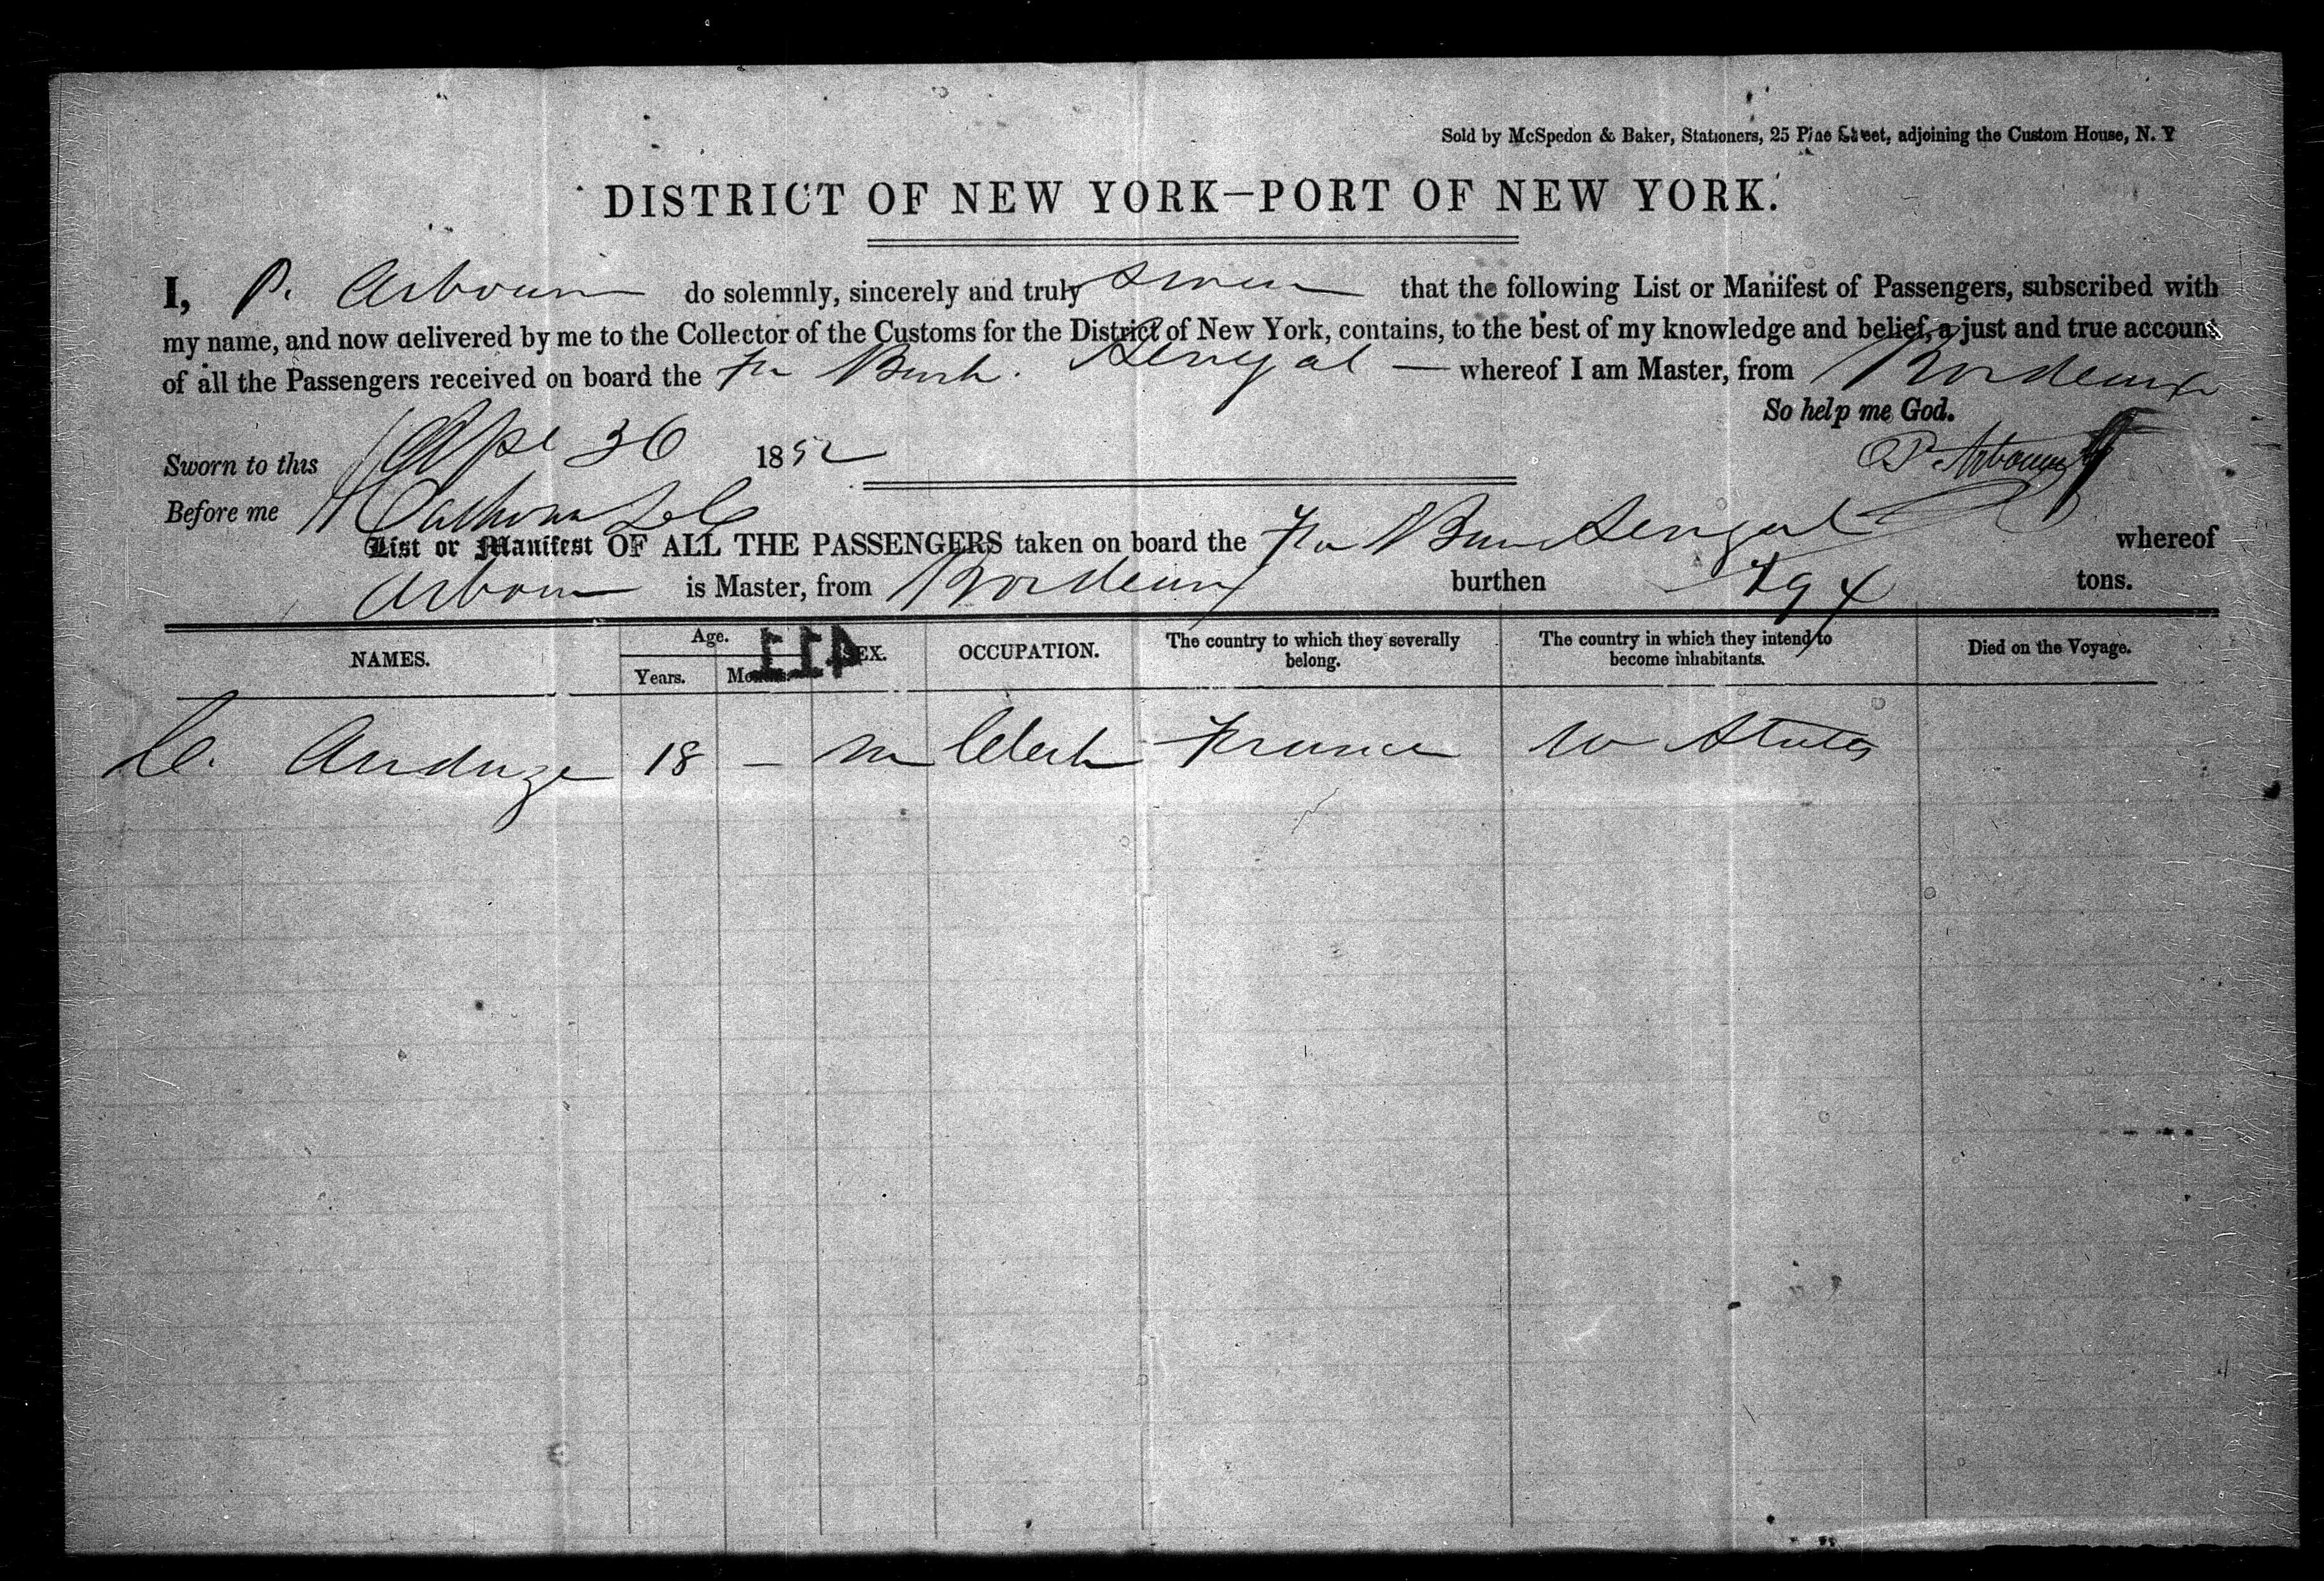 Sold by McSpedon & Baker, Stationers, 25 Pine Street, adjoining the Custom House, N. Y
DISTRICT OF NEW YORK—PORT OF NEW YORK.
I, P. Arboun do solemnly, sincerely and truly swear that the following List or Manifest of Passengers, subscribed with
my name, and now delivered by me to the Collector of the Customs for the District of New York, contains, to the best of my knowledge and belief, a just and true account
of all the Passengers received on board the Fr Bark. Senegal — whereof I am Master, from Bordeaux
So help me God.
Sworn to this Apl 30 1852
P. Arboun
Before me
List or Manifest OF ALL THE PASSENGERS taken on board the Fr Bark Senegal whereof
Arboun is Master, from Bordeaux burthen 194 tons.
NAMES. Age. Years. Months. SEX. OCCUPATION. The country to which they severally belong. The country in which they intend to become inhabitants. Died on the Voyage.
411
C. Anduze 18 — m Clerk France U States